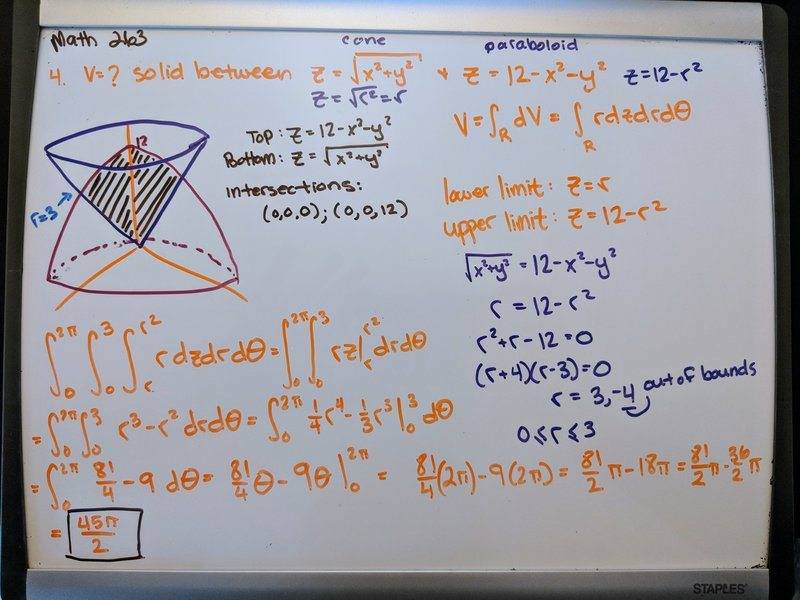 Math 263
cone
paraboloid
4. V=? solid between z = √x²+y² + z = 12-x²-y² z=12-r²
z = √r² = r
V = ∫_R dV = ∫_R rdzdrdθ
Top: z = 12-x²-y²
Bottom: z = √x²+y²
intersections:
(0,0,0); (0,0,12)
12
r=3
lower limit: z=r
upper limit: z=12-r²
√x²+y² = 12-x²-y²
r = 12-r²
r²+r-12=0
(r+4)(r-3)=0
r = 3,-4 out of bounds
0≤r≤3
∫₀^2π ∫₀³ ∫ᵣ^r² rdzdrdθ = ∫₀^2π ∫₀³ rz|ᵣ^r² drdθ
= ∫₀^2π ∫₀³ r³-r² drdθ = ∫₀^2π 1/4 r⁴ - 1/3 r³ |₀³ dθ
= ∫₀^2π 81/4 - 9 dθ = 81/4 θ - 9θ |₀^2π = 81/4 (2π) - 9(2π) = 81/2 π - 18π = 81/2 π - 36/2 π
= 45π/2
STAPLES